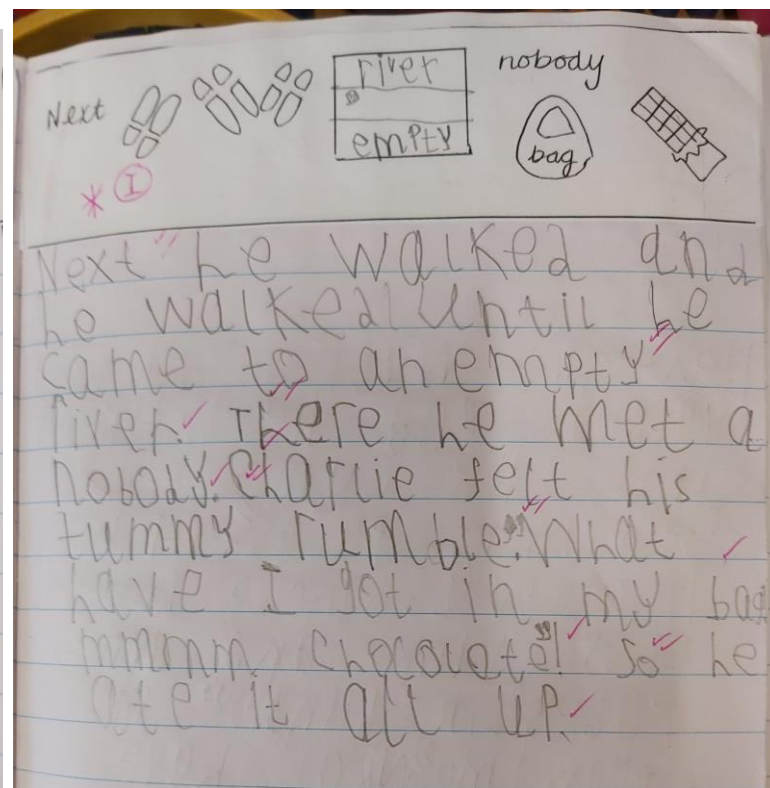 Next river nobody
empty bag
I
Next he walked and
he walked until he
came to an empty
river. There he met a
nobody. Charlie felt his
tummy rumble. "What
have I got in my bag
mmmm chocolate!" so he
ate it all up.